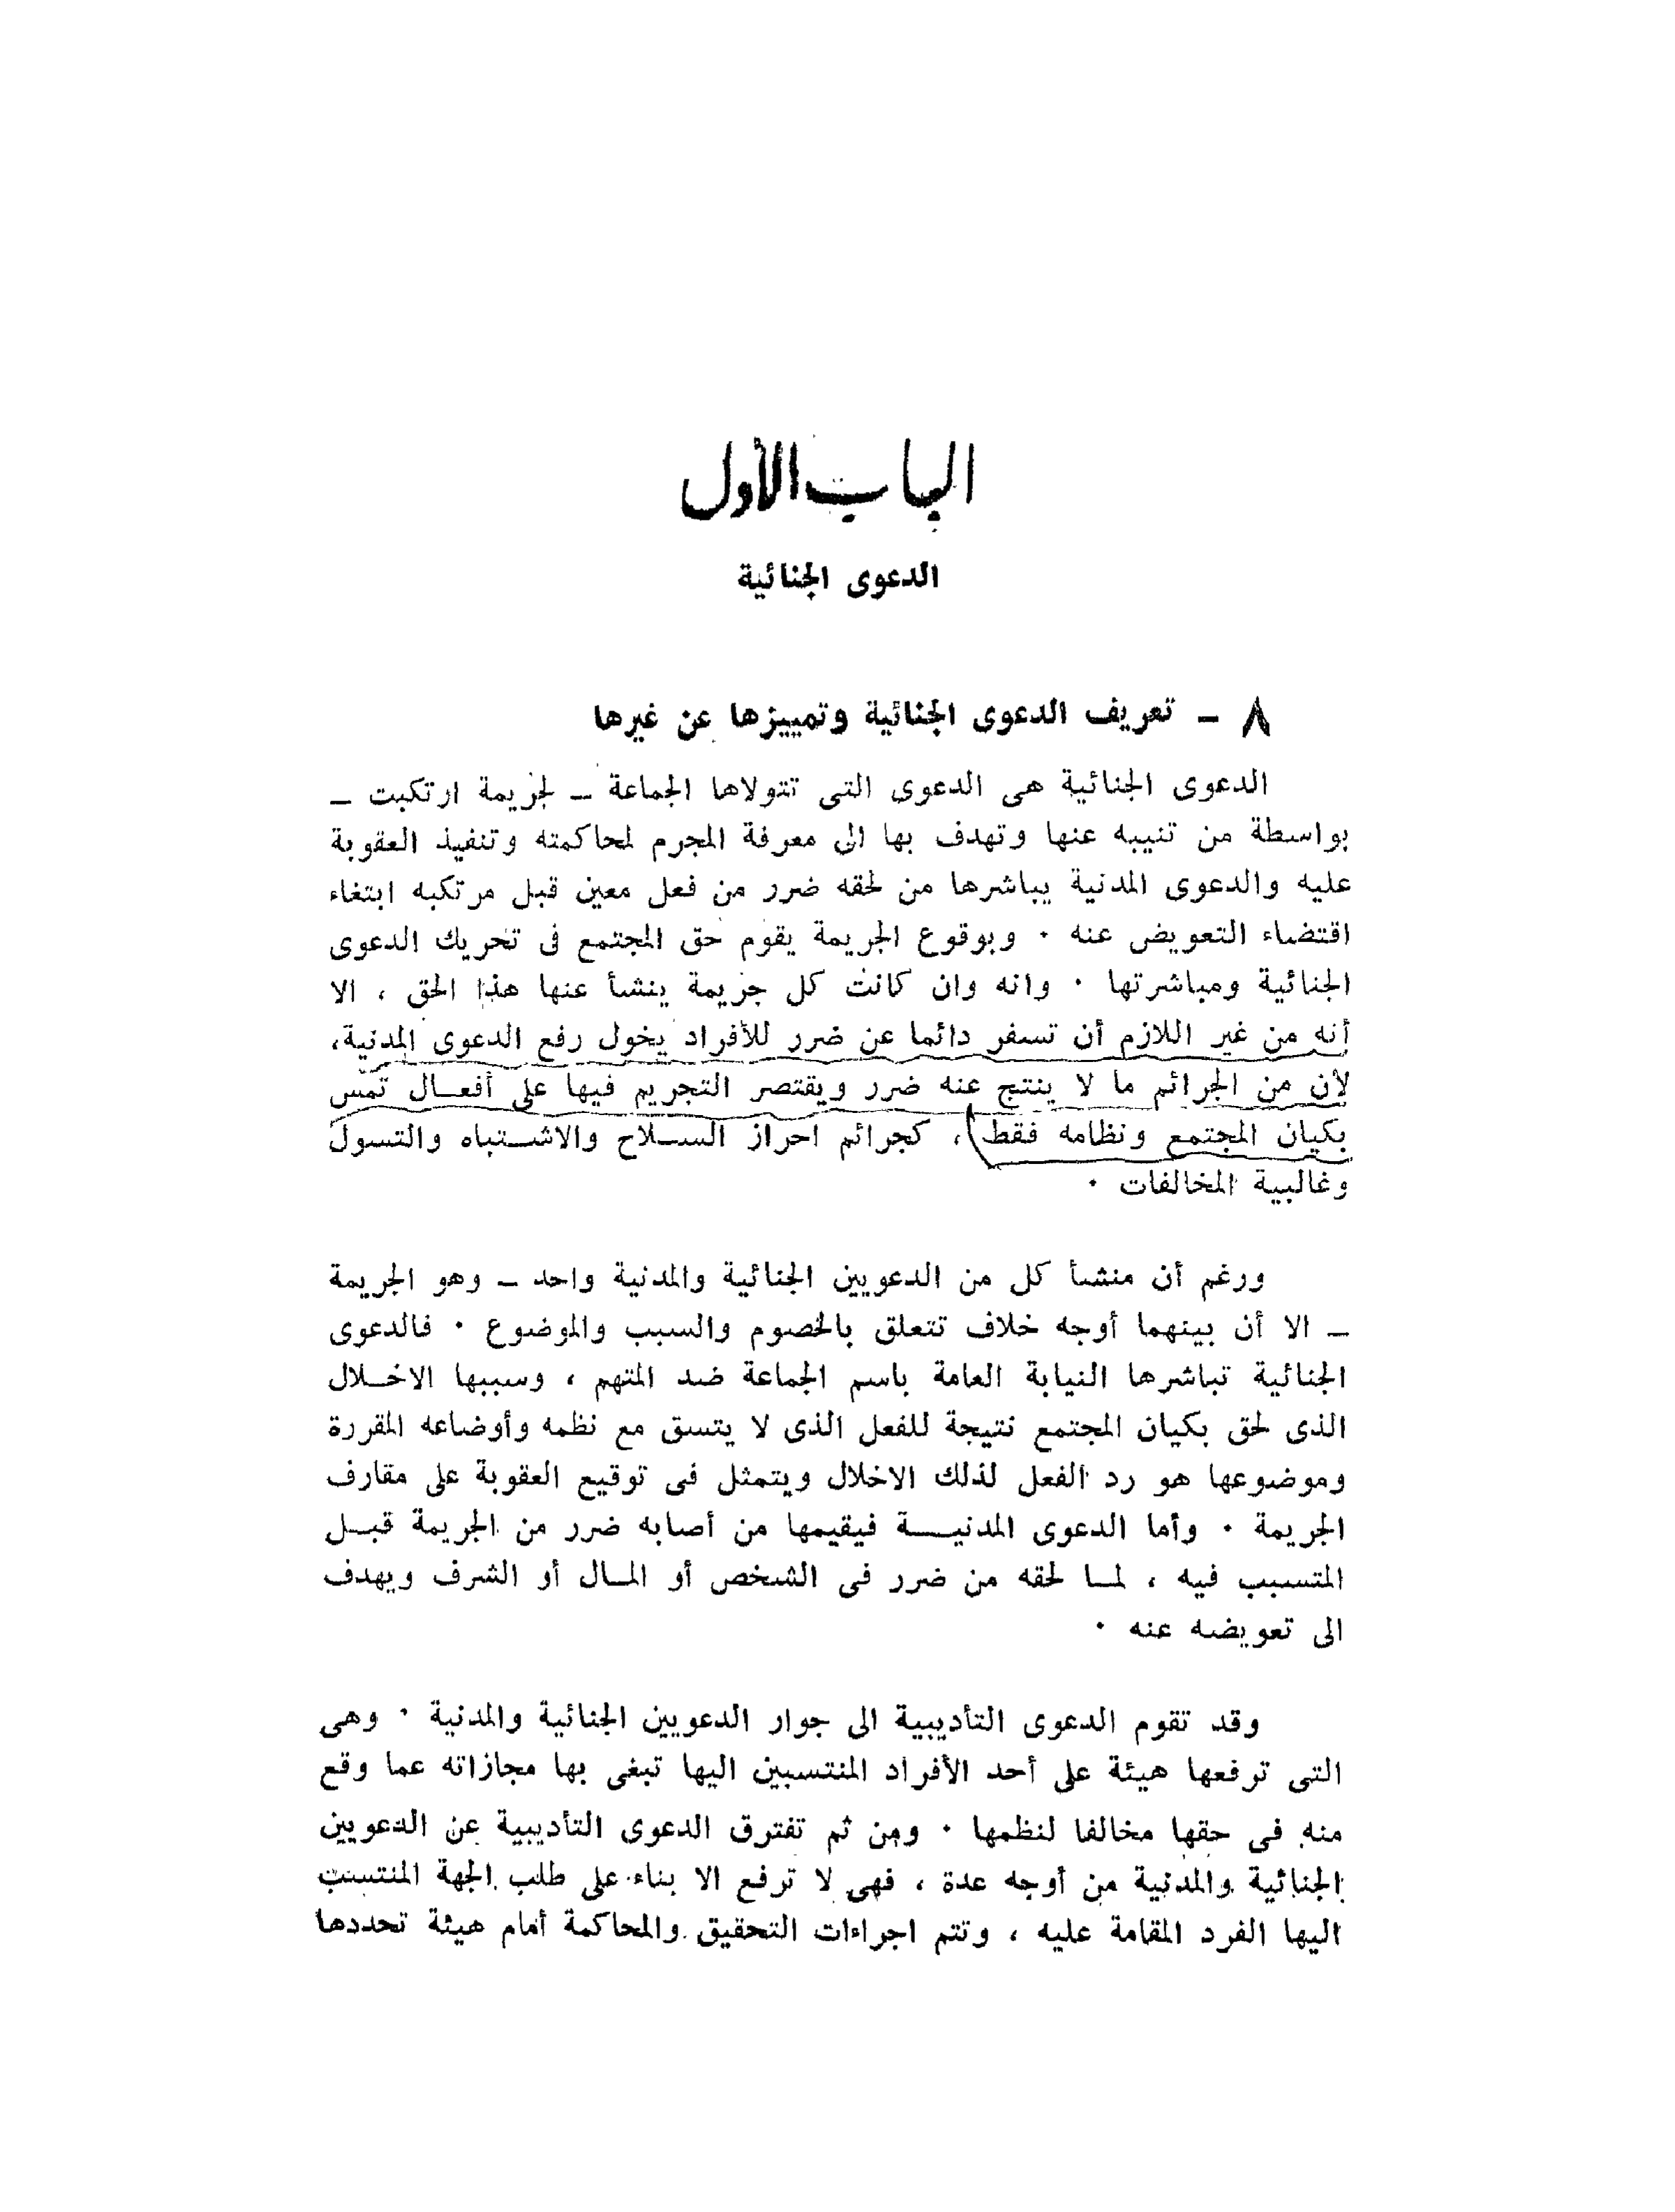 الباب الأول
الدعوى الجنائية
٨ ـ تعريف الدعوى الجنائية وتمييزها عن غيرها
الدعوى الجنائية هى الدعوى التى تتولاها الجماعة ـ لجريمة ارتكبت ـ
بواسطة من تنيبه عنها وتهدف بها الى معرفة المجرم لمحاكمته وتنفيذ العقوبة
عليه والدعوى المدنية يباشرها من لحقه ضرر من فعل معين قبل مرتكبه ابتغاء
اقتضاء التعويض عنه ٠ وبوقوع الجريمة يقوم حق المجتمع فى تحريك الدعوى
الجنائية ومباشرتها ٠ وانه وان كانت كل جريمة ينشأ عنها هذا الحق ، الا
أنه من غير اللازم أن تسفر دائما عن ضرر للأفراد يخول رفع الدعوى المدنية،
لأن من الجرائم ما لا ينتج عنه ضرر ويقتصر التجريم فيها على أفعـال تمس
بكيان المجتمع ونظامه فقط ، كجرائم احراز السـلاح والاشـتباه والتسول
وغالبية المخالفات ٠
ورغم أن منشأ كل من الدعويين الجنائية والمدنية واحد ـ وهو الجريمة
ـ الا أن بينهما أوجه خلاف تتعلق بالخصوم والسبب والموضوع ٠ فالدعوى
الجنائية تباشرها النيابة العامة باسم الجماعة ضد المتهم ، وسببها الاخـلال
الذى لحق بكيان المجتمع نتيجة للفعل الذى لا يتسق مع نظمه وأوضاعه المقررة
وموضوعها هو رد الفعل لذلك الاخلال ويتمثل فى توقيع العقوبة على مقارف
الجريمة ٠ وأما الدعوى المدنيـــة فيقيمها من أصابه ضرر من الجريمة قبـل
المتسبب فيه ، لمـا لحقه من ضرر فى الشخص أو المـال أو الشرف ويهدف
الى تعويضه عنه ٠
وقد تقوم الدعوى التأديبية الى جوار الدعويين الجنائية والمدنية ٠ وهى
التى ترفعها هيئة على أحد الأفراد المنتسبين اليها تبغى بها مجازاته عما وقع
منه فى حقها مخالفا لنظمها ٠ ومن ثم تفترق الدعوى التأديبية عن الدعويين
الجنائية والمدنية من أوجه عدة ، فهى لا ترفع الا بناء على طلب الجهة المنتسب
اليها الفرد المقامة عليه ، وتتم اجراءات التحقيق والمحاكمة أمام هيئة تحددها